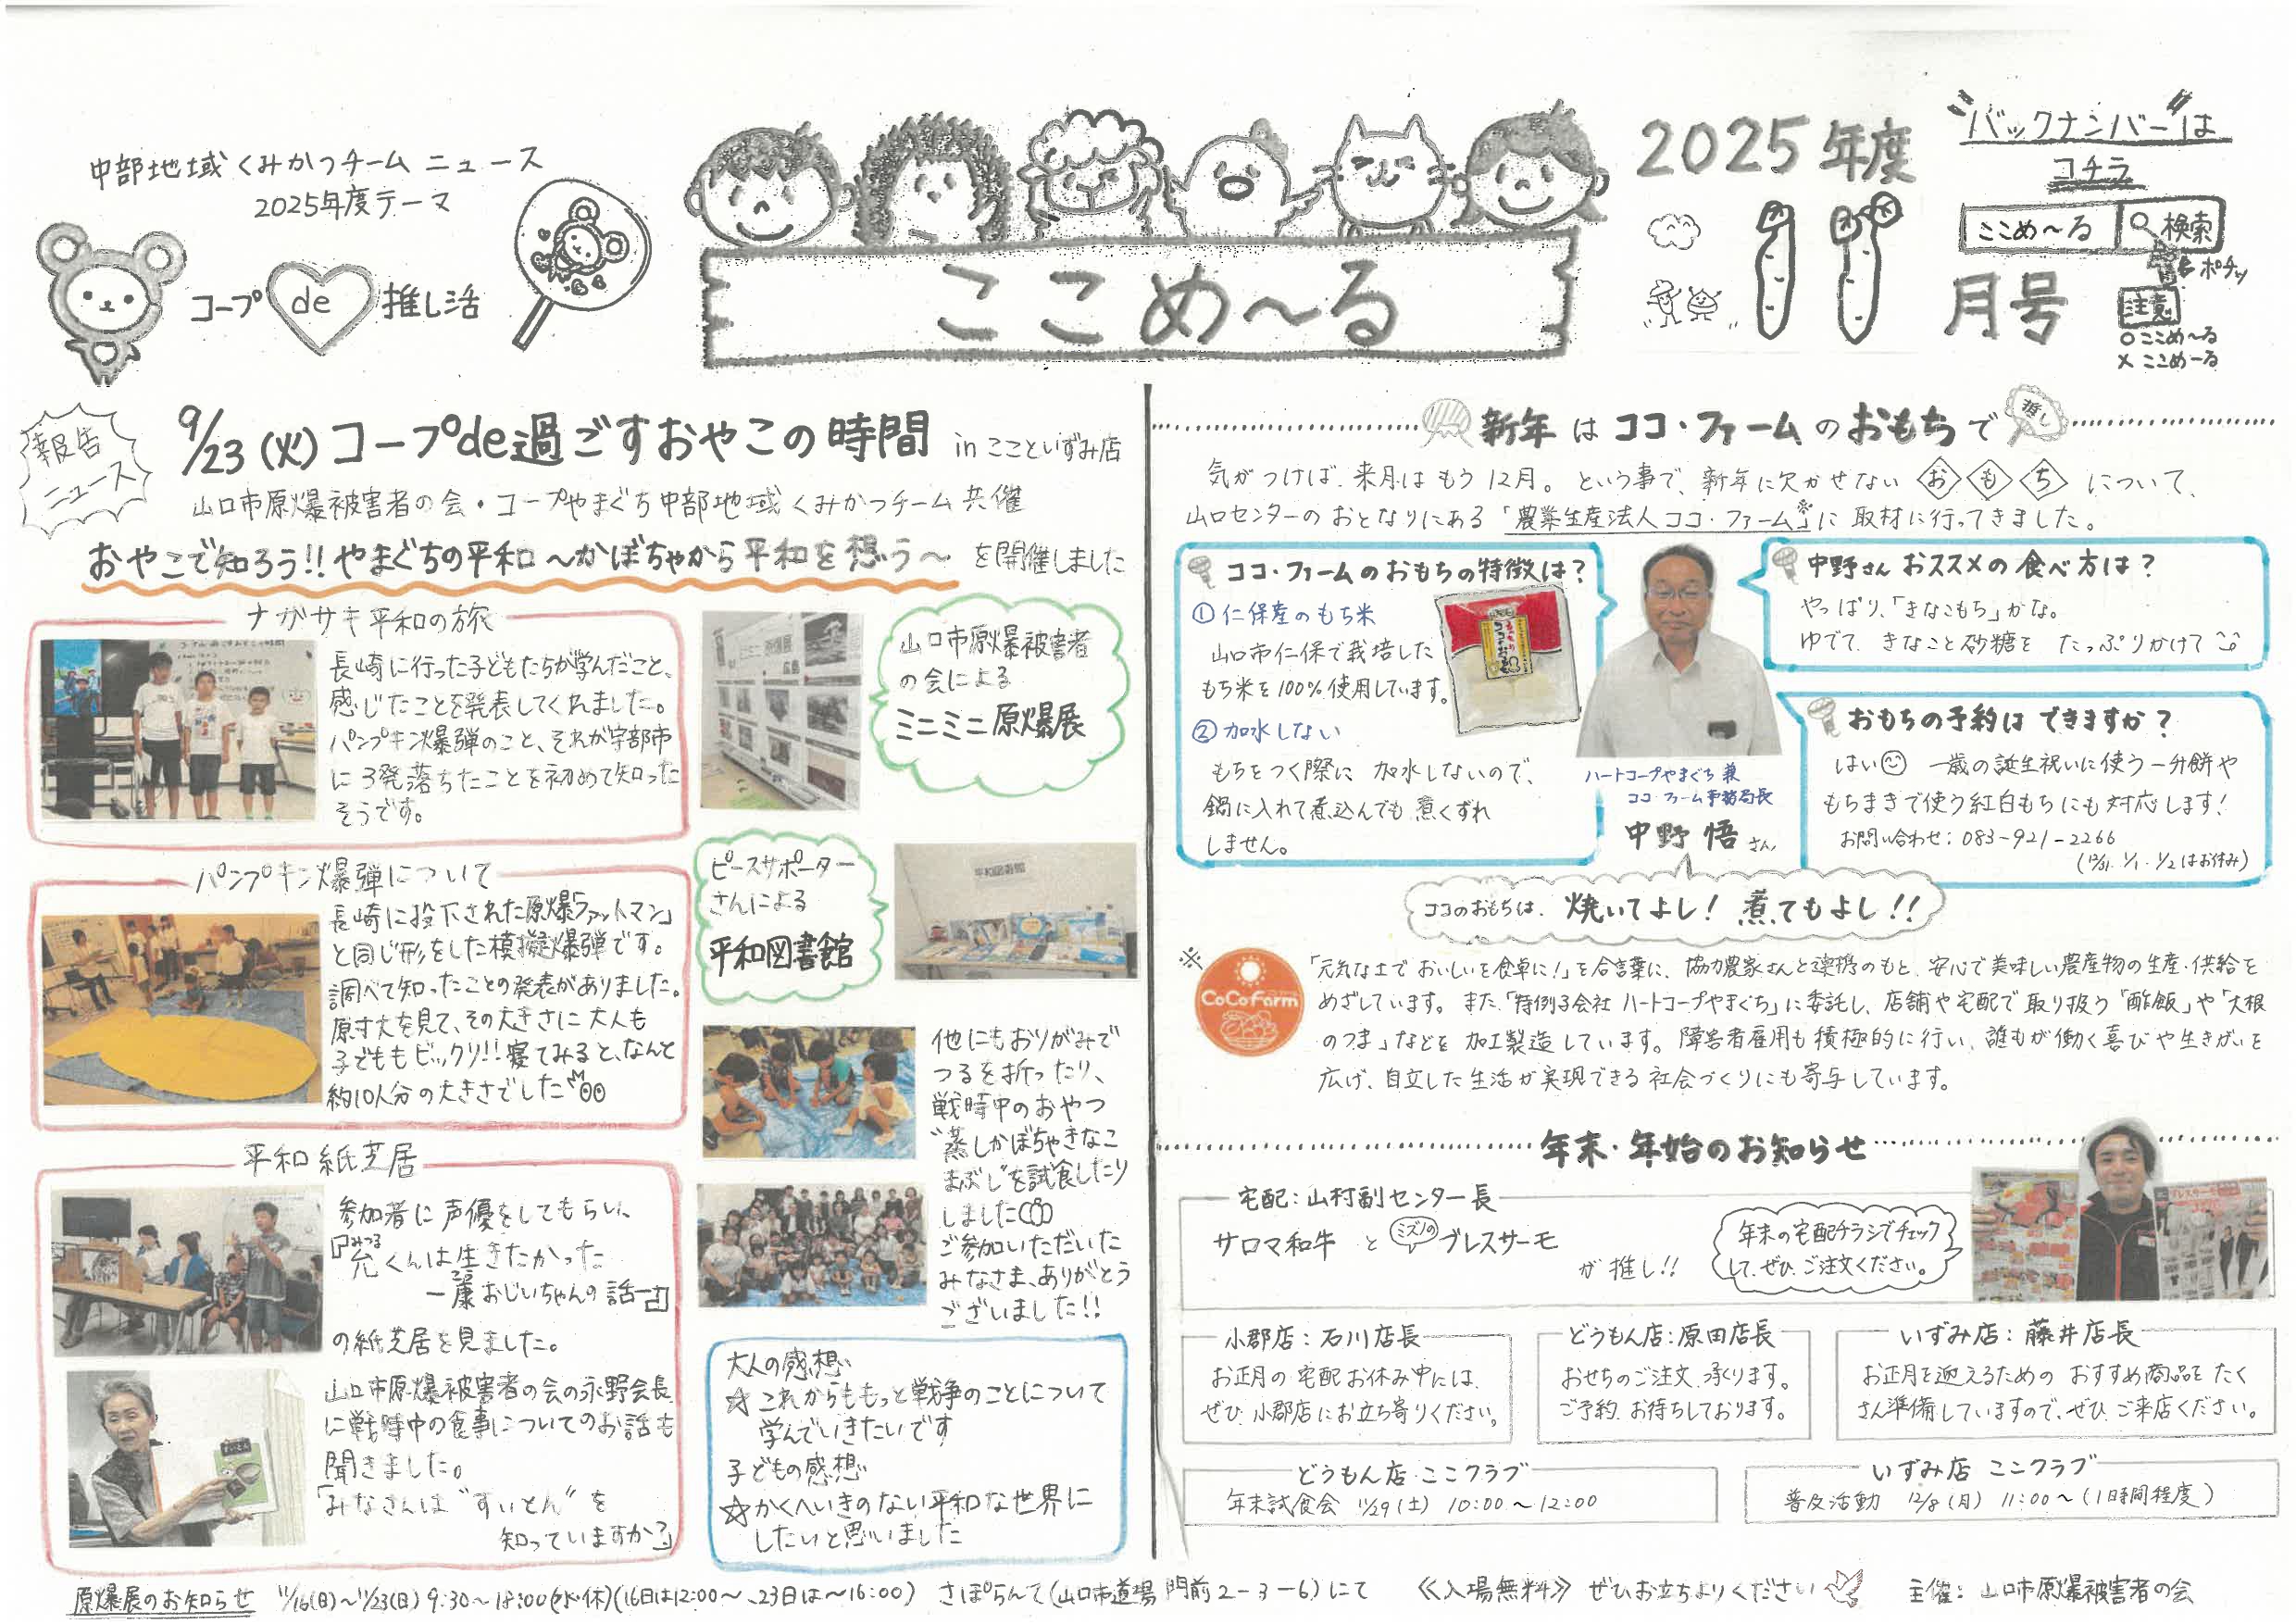 中部地域くみかつチーム ニュース
2025年度テーマ
コープ de 推し活
ここめ〜る
2025年度
11
月号
"バックナンバー"は
コチラ
ここめ〜る 検索
ポチッ
注意
○ここめ〜る
×ここめーる
報告
ニュース
9/23(火)コープde過ごすおやこの時間 in ここといずみ店
山口市原爆被害者の会・コープやまぐち中部地域くみかつチーム共催
おやこで知ろう!!やまぐちの平和〜かぼちゃから平和を想う〜 を開催しました
ナガサキ平和の旅
長崎に行った子どもたちが学んだこと、
感じたことを発表してくれました。
パンプキン爆弾のこと、それが宇部市
に3発落ちたことを初めて知った
そうです。
山口市原爆被害者
の会による
ミニミニ原爆展
パンプキン爆弾について
長崎に投下された原爆「ファットマン」
と同じ形をした模擬爆弾です。
調べて知ったことの発表がありました。
原寸大を見て、その大きさに大人も
子どももビックリ!!寝てみると、なんと
約10人分の大きさでした
ピースサポーター
さんによる
平和図書館
平和図書館
他にもおりがみで
つるを折ったり、
戦時中のおやつ
"蒸しかぼちゃきなこ
まぶし"を試食したり
しました
ご参加いただいた
みなさま、ありがとう
ございました!!
平和紙芝居
参加者に声優をしてもらい、
『允くんは生きたかった
みつる
ー廉おじいちゃんの話ー』
の紙芝居を見ました。
山口市原爆被害者の会の永野会長
に戦時中の食事についてのお話も
聞きました。
「みなさんは"すいとん"を
知っていますか?」
すいとん
大人の感想
☆これからももっと戦争のことについて
学んでいきたいです
子どもの感想
☆かくへいきのない平和な世界に
したいと思いました
新年はココ・ファームのおもちで
推し
気がつけば、来月はもう12月。という事で、新年に欠かせない おもち について、
山口センターのおとなりにある「農業生産法人ココ・ファーム」※に取材に行ってきました。
ココ・ファームのおもちの特徴は?
①仁保産のもち米
山口市仁保で栽培した
もち米を100%使用しています。
②加水しない
もちをつく際に加水しないので、
鍋に入れて煮込んでも煮くずれ
しません。
ハートコープやまぐち兼
ココ・ファーム事務局長
中野 悟さん
中野さんおススメの食べ方は?
やっぱり、「きなこもち」かな。
ゆでて、きなこと砂糖をたっぷりかけて
おもちの予約はできますか?
はい 一歳の誕生祝いに使う一升餅や
もちまきで使う紅白もちにも対応します!
お問い合わせ:083-921-2266
(12/31、1/1、1/2はお休み)
ココのおもちは、焼いてよし!煮てもよし!!
※
CoCoFarm
「元気な土でおいしいを食卓に!」を合言葉に、協力農家さんと連携のもと、安心で美味しい農産物の生産・供給を
めざしています。また、「特例子会社 ハートコープやまぐち」に委託し、店舗や宅配で取り扱う「酢飯」や「大根
のつま」などを加工製造しています。障害者雇用も積極的に行い、誰もが働く喜びや生きがいを
広げ、自立した生活が実現できる社会づくりにも寄与しています。
年末・年始のお知らせ
宅配:山村副センター長
サロマ和牛とミズノのブレスサーモ
が推し!!
年末の宅配チラシでチェック
して、ぜひ、ご注文ください。
小郡店:石川店長
お正月の宅配お休み中には、
ぜひ小郡店にお立ち寄りください。
どうもん店:原田店長
おせちのご注文、承ります。
ご予約、お待ちしております。
いずみ店:藤井店長
お正月を迎えるためのおすすめ商品をたく
さん準備していますので、ぜひご来店ください。
どうもん店 ここクラブ
年末試食会 11/29(土) 10:00〜12:00
いずみ店 ここクラブ
普及活動 12/8(月) 11:00〜(1時間程度)
原爆展のお知らせ 11/16(日)〜11/23(日) 9:30〜18:00(水・休)(16日は12:00〜、23日は〜16:00) さぽらんて(山口市道場門前2-3-6)にて 《入場無料》ぜひお立ちよりください 主催:山口市原爆被害者の会